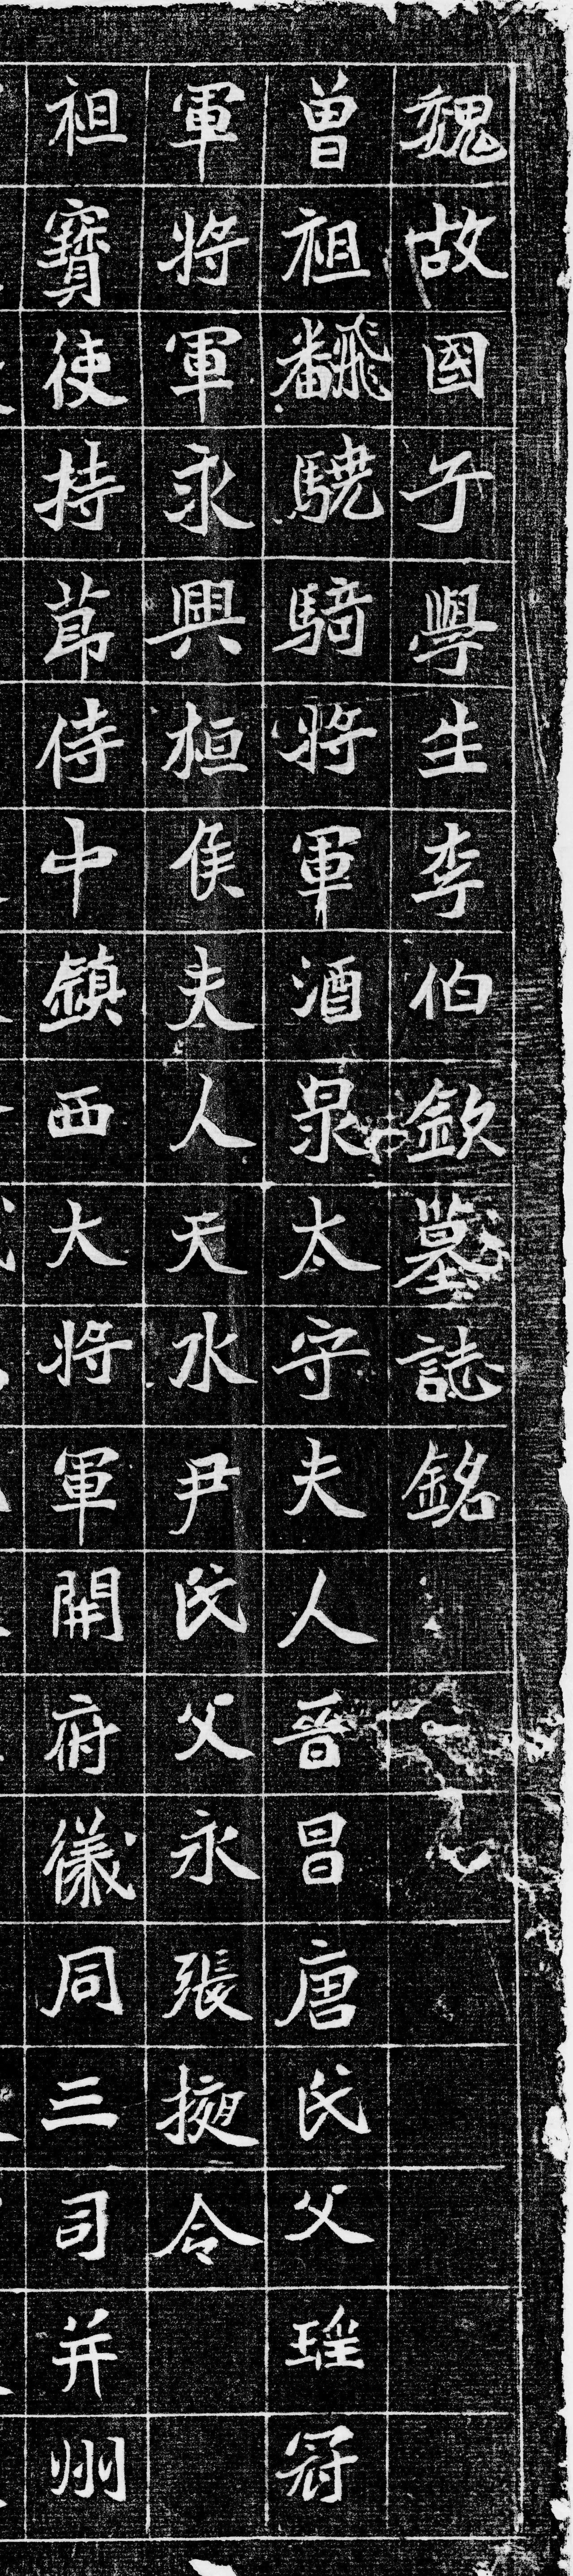 魏故國子學生李伯欽墓誌銘
曾祖翻驍騎將軍酒泉太守夫人晉昌唐氏父瑶冠
軍將軍永興桓侯夫人天水尹氏父永張掖令
祖寶使持節侍中鎮西大將軍開府儀同三司并州